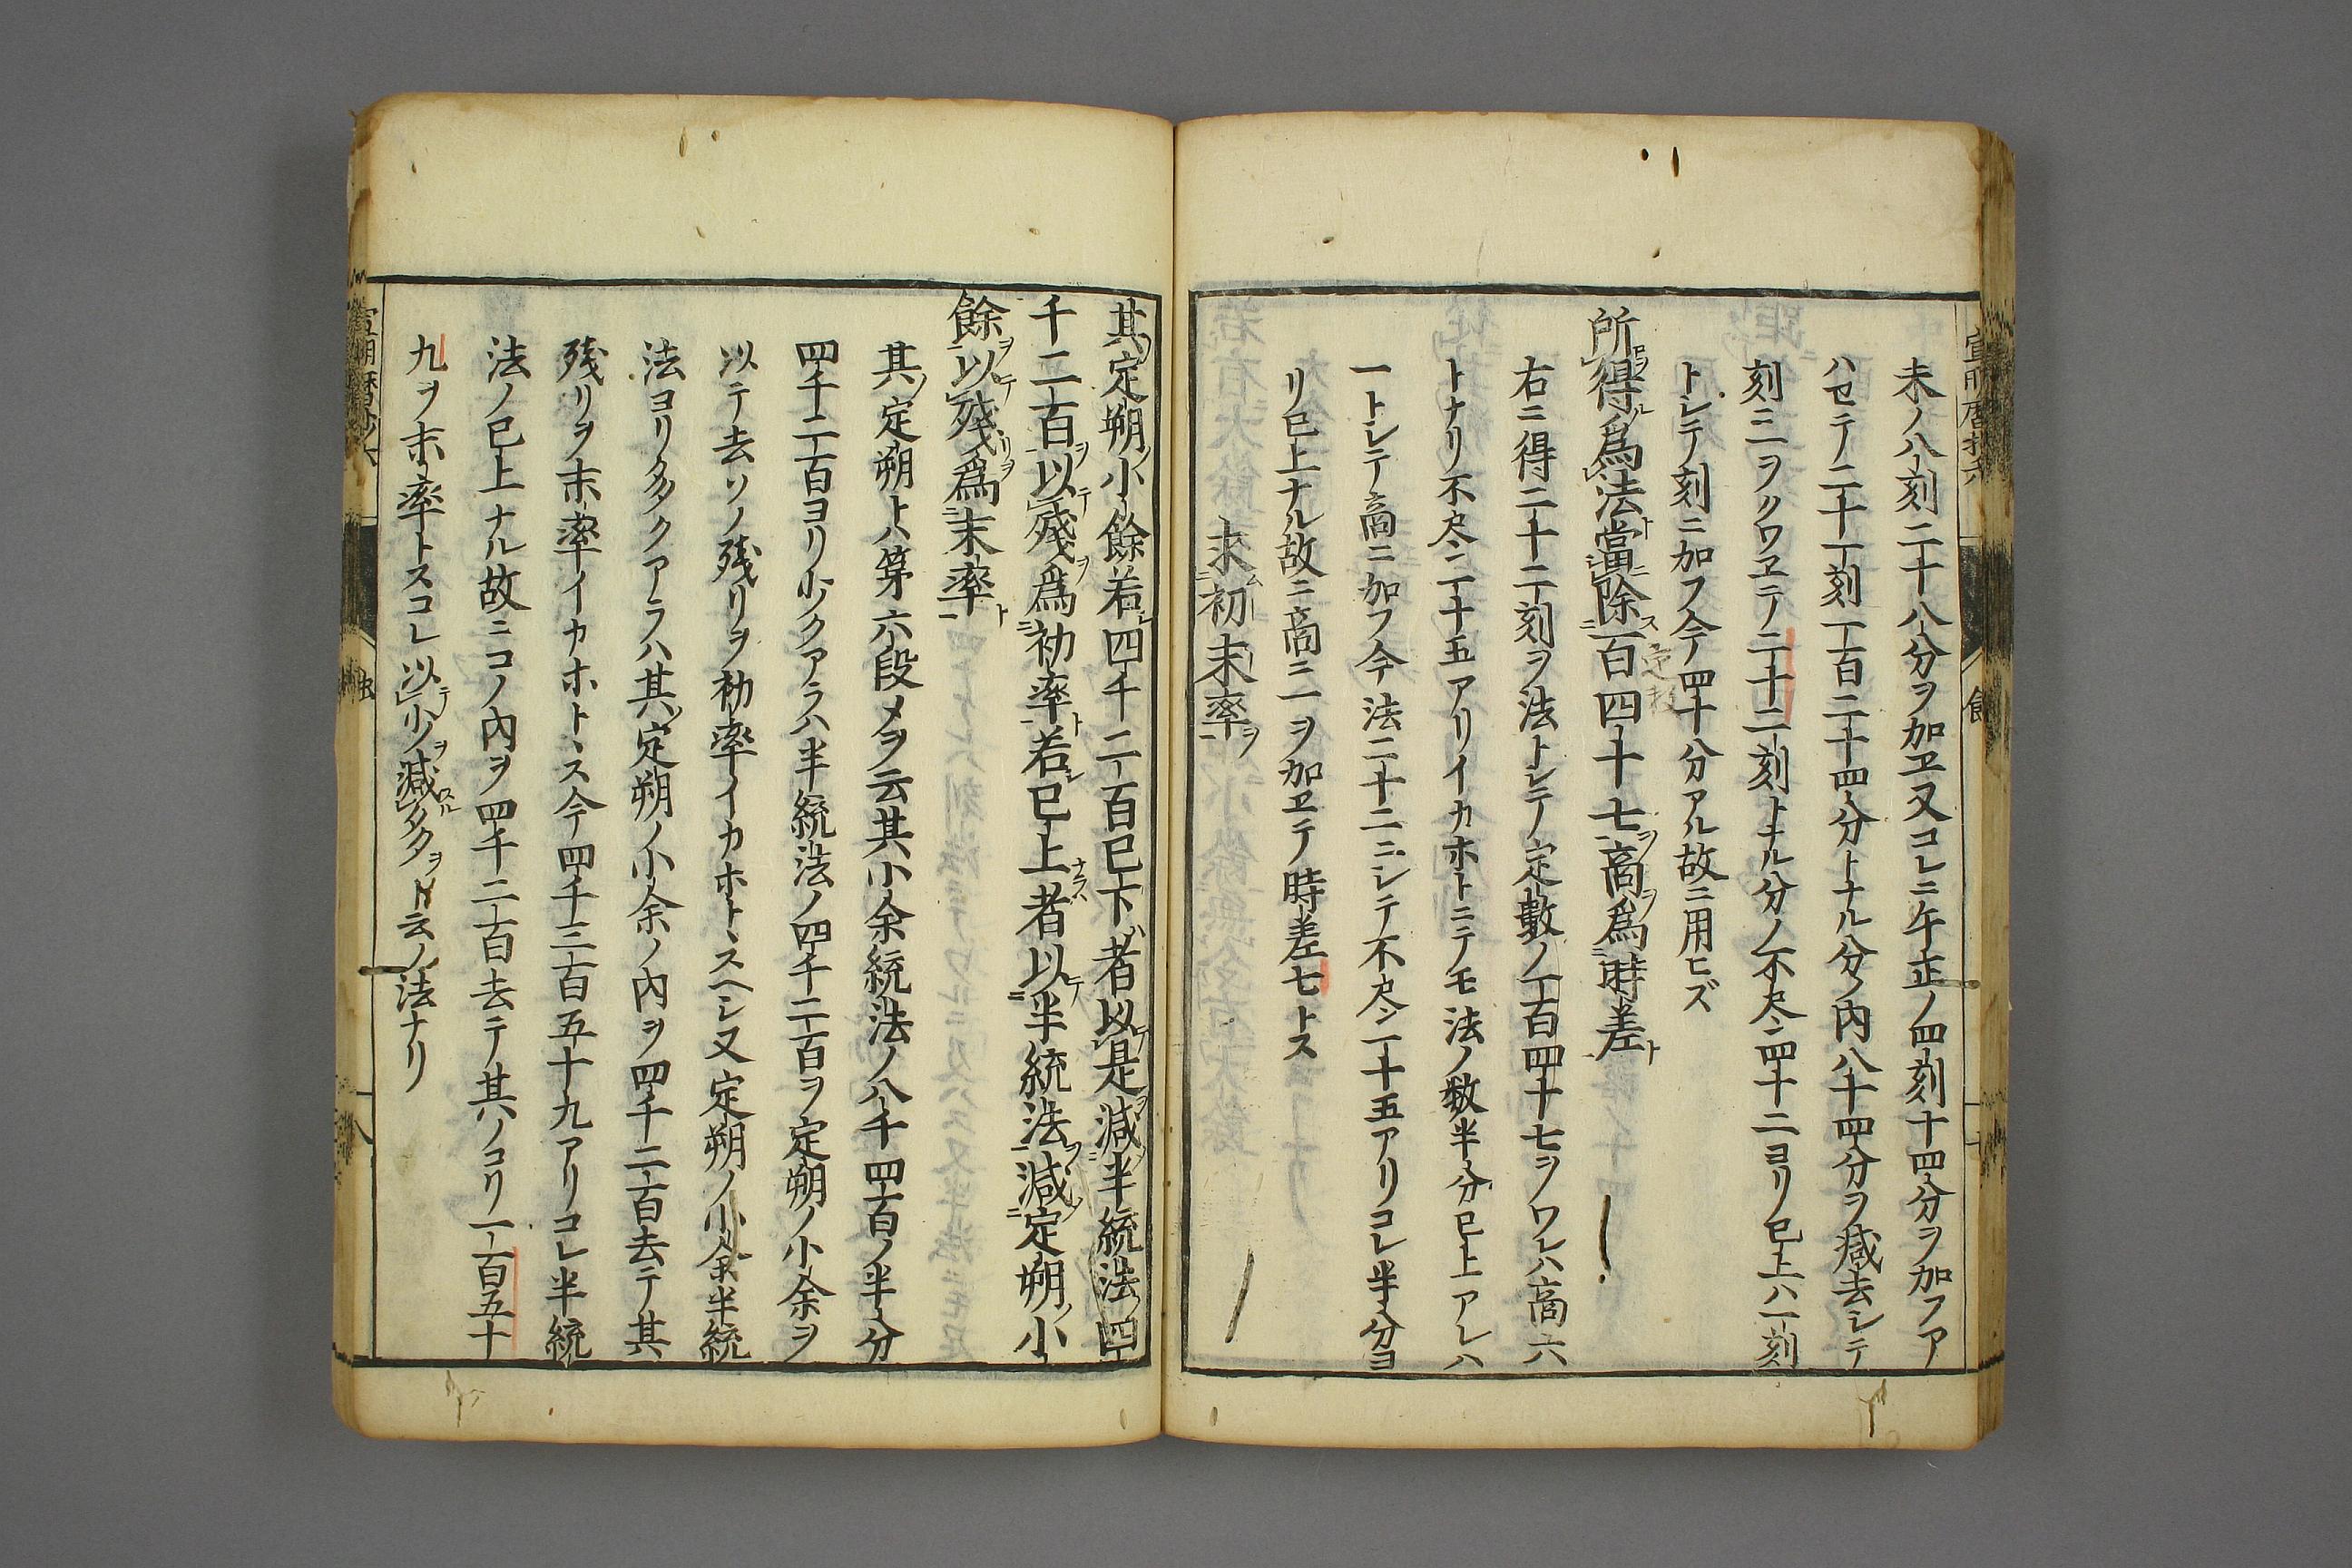 未ノ八刻二十八分ヲ加ヱ又コレニ午正ノ四刻十四分ヲ加フア
ハセテ二十一刻一百二十四分トナル分ノ内八十四分ヲ減去シテ
刻ニ一ヲクワヱテ二十二刻トナル分ノ不尽ニ四十二ヨリ已上ハ一刻
トシテ刻ニ加フ今四十分アル故ニ用ヒズ
所得爲法當除一百四十七商爲時差
右ニ得二十二刻ヲ法トシテ定數ノ一百四十七ヲワレハ商六
トナリ不尽ニ一十五アリイカホトニテモ法ノ数半分已上アレハ
一トシテ商ニ加フ今法二十二ニシテ不尽ニ一十五アリコレ半分ヨ
リ已上ナル故ニ商ニ一ヲ加ヱテ時差七トス
求初末率
其定朔小餘若四千二百已下者以是減半統法四
千二百以殘爲初率若已上者以半統法減定朔小
餘以殘爲末率
其定朔トハ第六段メヲ云其小余統法ノ八千四百ノ半分
四千二百ヨリ少クアラハ半統法ノ四千二百ヲ定朔ノ小余ヲ
以テ去ソノ残リヲ初率イカホトヽスヘシ又定朔ノ小余半統
法ヨリ多クアラハ其定朔ノ小余ノ内ヲ四千二百去テ其
残リヲ末率イカホトヽス今四千三百五十九アリコレ半統
法ノ已上ナル故ニコノ内ヲ四千二百去テ其ノコリ一百五十
九ヲ末率トスコレ以少減多ト云ノ法ナリ